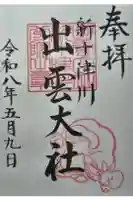 奉拝
新十津川
出雲大社
令和八年五月九日